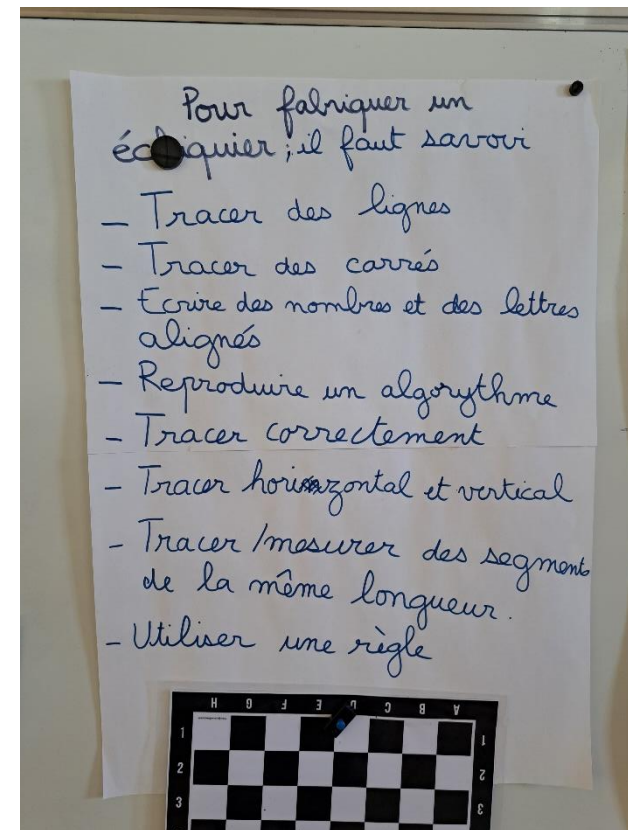 Pour fabriquer un
échiquier ; il faut savoir
– Tracer des lignes
– Tracer des carrés
– Ecrire des nombres et des lettres
alignés
– Reproduire un algorythme
– Tracer correctement
– Tracer horizontal et vertical
– Tracer / mesurer des segments
de la même longueur.
– Utiliser une règle
H G F E D C B A
1 1
2 2
3 3